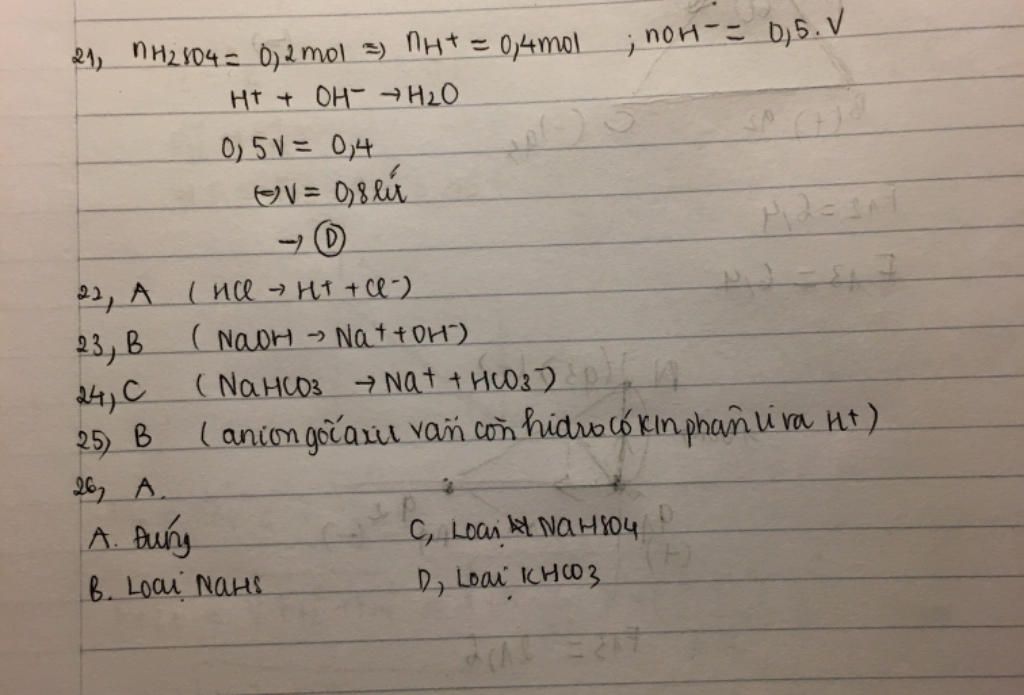 21, nH2SO4 = 0,2mol => nH+ = 0,4mol ; nOH- = 0,5.V
H+ + OH- → H2O
0,5V = 0,4
⇔V = 0,8 lít
→ Ⓓ
22, A (HCl → H+ + Cl-)
23, B (NaOH → Na+ + OH-)
24, C (NaHCO3 → Na+ + HCO3-)
25) B (anion gốc axit vẫn còn hidro có knn phân li ra H+)
26, A.
A. Đúng C, Loại NaHSO4
B. Loại NaHS D, Loại KHCO3